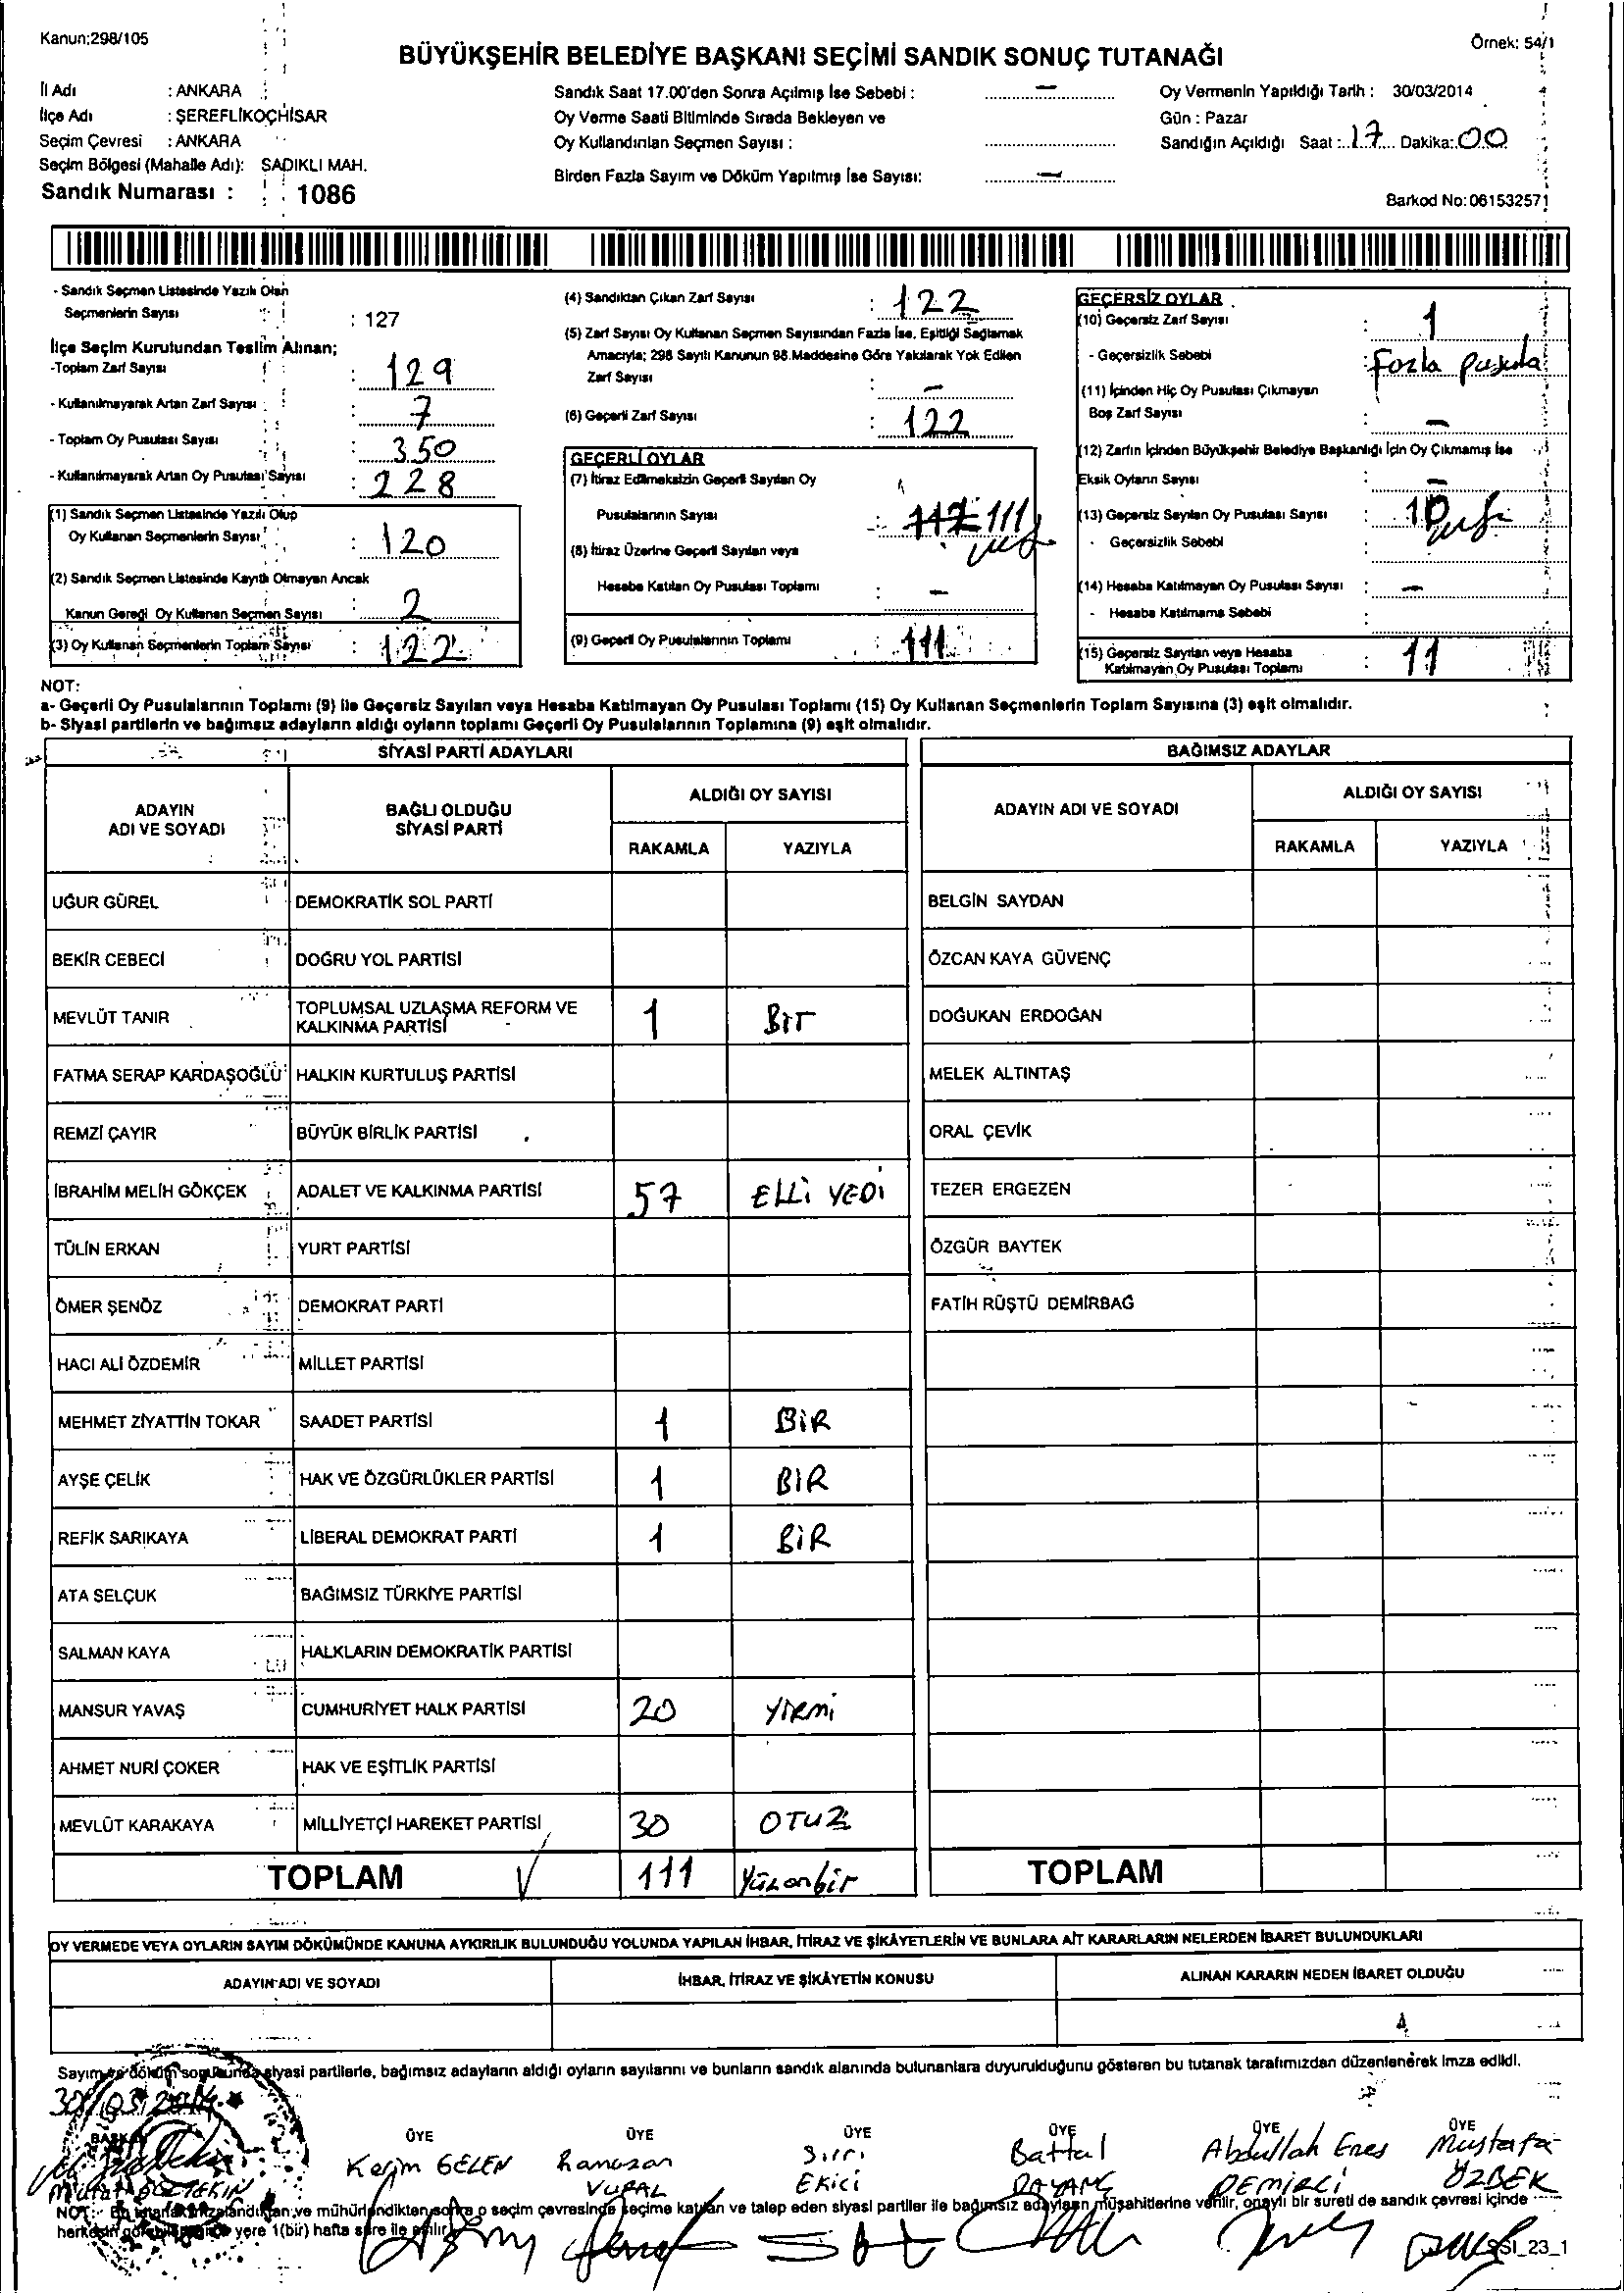 Kanun;298/105
Örnek: 54/1
BÜYÜKŞEHİR BELEDİYE BAŞKANI SEÇİMİ SANDIK SONUÇ TUTANAĞI
İl Adı : ANKARA
İlçe Adı : ŞEREFLİKOÇHİSAR
Seçim Çevresi : ANKARA
Seçim Bölgesi (Mahalle Adı): SADIKLI MAH.
Sandık Numarası : 1086
Sandık Saat 17.00'den Sonra Açılmış İse Sebebi : –
Oy Verme Saati Bitiminde Sırada Bekleyen ve
Oy Kullandırılan Seçmen Sayısı :
Birden Fazla Sayım ve Döküm Yapılmış İse Sayısı: –
Oy Vermenin Yapıldığı Tarih : 30/03/2014
Gün : Pazar
Sandığın Açıldığı Saat : 17 Dakika: 00
Barkod No: 061532571
- Sandık Seçmen Listesinde Yazılı Olan
Seçmenlerin Sayısı : 127
İlçe Seçim Kurulundan Teslim Alınan;
-Toplam Zarf Sayısı : 129
- Kullanılmayarak Artan Zarf Sayısı : 7
- Toplam Oy Pusulası Sayısı : 350
- Kullanılmayarak Artan Oy Pusulası Sayısı : 228
(1) Sandık Seçmen Listesinde Yazılı Olup
Oy Kullanan Seçmenlerin Sayısı : 120
(2) Sandık Seçmen Listesinde Kayıtlı Olmayan Ancak
Kanun Gereği Oy Kullanan Seçmen Sayısı : 2
(3) Oy Kullanan Seçmenlerin Toplam Sayısı : 122
(4) Sandıktan Çıkan Zarf Sayısı : 122
(5) Zarf Sayısı Oy Kullanan Seçmen Sayısından Fazla İse, Eşitliği Sağlamak
Amacıyla; 298 Sayılı Kanunun 98.Maddesine Göre Yakılarak Yok Edilen
Zarf Sayısı : –
(6) Geçerli Zarf Sayısı : 122
GEÇERLİ OYLAR
(7) İtiraz Edilmeksizin Geçerli Sayılan Oy
Pusulalarının Sayısı : 112 111
(8) İtiraz Üzerine Geçerli Sayılan veya
Hesaba Katılan Oy Pusulası Toplamı : –
(9) Geçerli Oy Pusulalarının Toplamı : 111
GEÇERSİZ OYLAR
(10) Geçersiz Zarf Sayısı : 1
- Geçersizlik Sebebi : Fazla pusula
(11) İçinden Hiç Oy Pusulası Çıkmayan
Boş Zarf Sayısı : –
(12) Zarfın İçinden Büyükşehir Belediye Başkanlığı İçin Oy Çıkmamış İse
Eksik Oyların Sayısı : –
(13) Geçersiz Sayılan Oy Pusulası Sayısı : 10
- Geçersizlik Sebebi
(14) Hesaba Katılmayan Oy Pusulası Sayısı : –
- Hesaba Katılmama Sebebi :
(15) Geçersiz Sayılan veya Hesaba
Katılmayan Oy Pusulası Toplamı : 11
NOT:
a- Geçerli Oy Pusulalarının Toplamı (9) ile Geçersiz Sayılan veya Hesaba Katılmayan Oy Pusulası Toplamı (15) Oy Kullanan Seçmenlerin Toplam Sayısına (3) eşit olmalıdır.
b- Siyasi partilerin ve bağımsız adayların aldığı oyların toplamı Geçerli Oy Pusulalarının Toplamına (9) eşit olmalıdır.
SİYASİ PARTİ ADAYLARI
ADAYIN ADI VE SOYADI BAĞLI OLDUĞU SİYASİ PARTİ ALDIĞI OY SAYISI
RAKAMLA YAZIYLA
UĞUR GÜREL DEMOKRATİK SOL PARTİ
BEKİR CEBECİ DOĞRU YOL PARTİSİ
MEVLÜT TANIR TOPLUMSAL UZLAŞMA REFORM VE KALKINMA PARTİSİ 1 BİR
FATMA SERAP KARDAŞOĞLU HALKIN KURTULUŞ PARTİSİ
REMZİ ÇAYIR BÜYÜK BİRLİK PARTİSİ
İBRAHİM MELİH GÖKÇEK ADALET VE KALKINMA PARTİSİ 57 ELLİ YEDİ
TÜLİN ERKAN YURT PARTİSİ
ÖMER ŞENÖZ DEMOKRAT PARTİ
HACI ALİ ÖZDEMİR MİLLET PARTİSİ
MEHMET ZİYATTİN TOKAR SAADET PARTİSİ 1 BİR
AYŞE ÇELİK HAK VE ÖZGÜRLÜKLER PARTİSİ 1 BIR
REFİK SARIKAYA LİBERAL DEMOKRAT PARTİ 1 BİR
ATA SELÇUK BAĞIMSIZ TÜRKİYE PARTİSİ
SALMAN KAYA HALKLARIN DEMOKRATİK PARTİSİ
MANSUR YAVAŞ CUMHURİYET HALK PARTİSİ 20 YİRMİ
AHMET NURİ ÇOKER HAK VE EŞİTLİK PARTİSİ
MEVLÜT KARAKAYA MİLLİYETÇİ HAREKET PARTİSİ 30 OTUZ
TOPLAM 111 Yüzonbir
BAĞIMSIZ ADAYLAR
ADAYIN ADI VE SOYADI ALDIĞI OY SAYISI
RAKAMLA YAZIYLA
BELGİN SAYDAN
ÖZCAN KAYA GÜVENÇ
DOĞUKAN ERDOĞAN
MELEK ALTINTAŞ
ORAL ÇEVİK
TEZER ERGEZEN
ÖZGÜR BAYTEK
FATİH RÜŞTÜ DEMİRBAĞ
TOPLAM
OY VERMEDE VEYA OYLARIN SAYIM DÖKÜMÜNDE KANUNA AYKIRILIK BULUNDUĞU YOLUNDA YAPILAN İHBAR, İTİRAZ VE ŞİKÂYETLERİN VE BUNLARA AİT KARARLARIN NELERDEN İBARET BULUNDUKLARI
ADAYIN ADI VE SOYADI İHBAR, İTİRAZ VE ŞİKÂYETİN KONUSU ALINAN KARARIN NEDEN İBARET OLDUĞU
Sayım ve döküm sonucunda siyasi partilerle, bağımsız adayların aldığı oyların sayılarını ve bunların sandık alanında bulunanlara duyurulduğunu gösteren bu tutanak tarafımızdan düzenlenerek imza edildi.
30/03/2014
BAŞKAN ÜYE ÜYE ÜYE ÜYE ÜYE ÜYE
Kerim GELEN Ramazan VURAL Sırrı Ekici Battal Abdullah Enes DEMİRCİ Mustafa ÖZBEK
NOT: Bu tutanak imzalandıktan ve mühürlendikten sonra o seçim çevresinde seçime katılan ve talep eden siyasi partiler ile bağımsız adayların müşahitlerine verilir, onaylı bir sureti de sandık çevresi içinde
herkesin görebileceği bir yere 1(bir) hafta süre ile asılır.
SSI_23_1